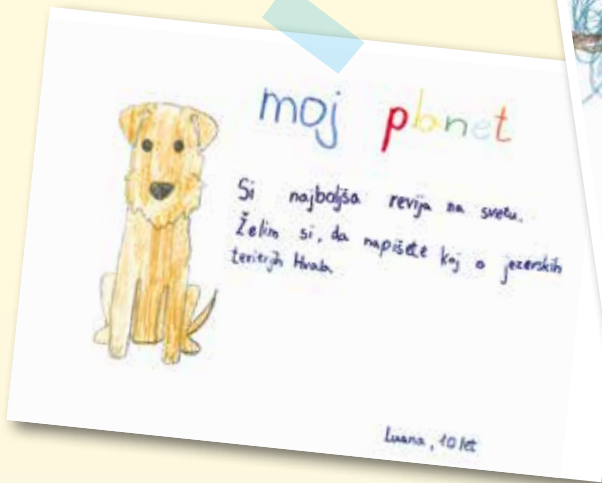 moj planet
Si najboljša revija na svetu.
Želim si, da napišete kaj o jezerskih
terierjih Hvala
Luana, 10 let